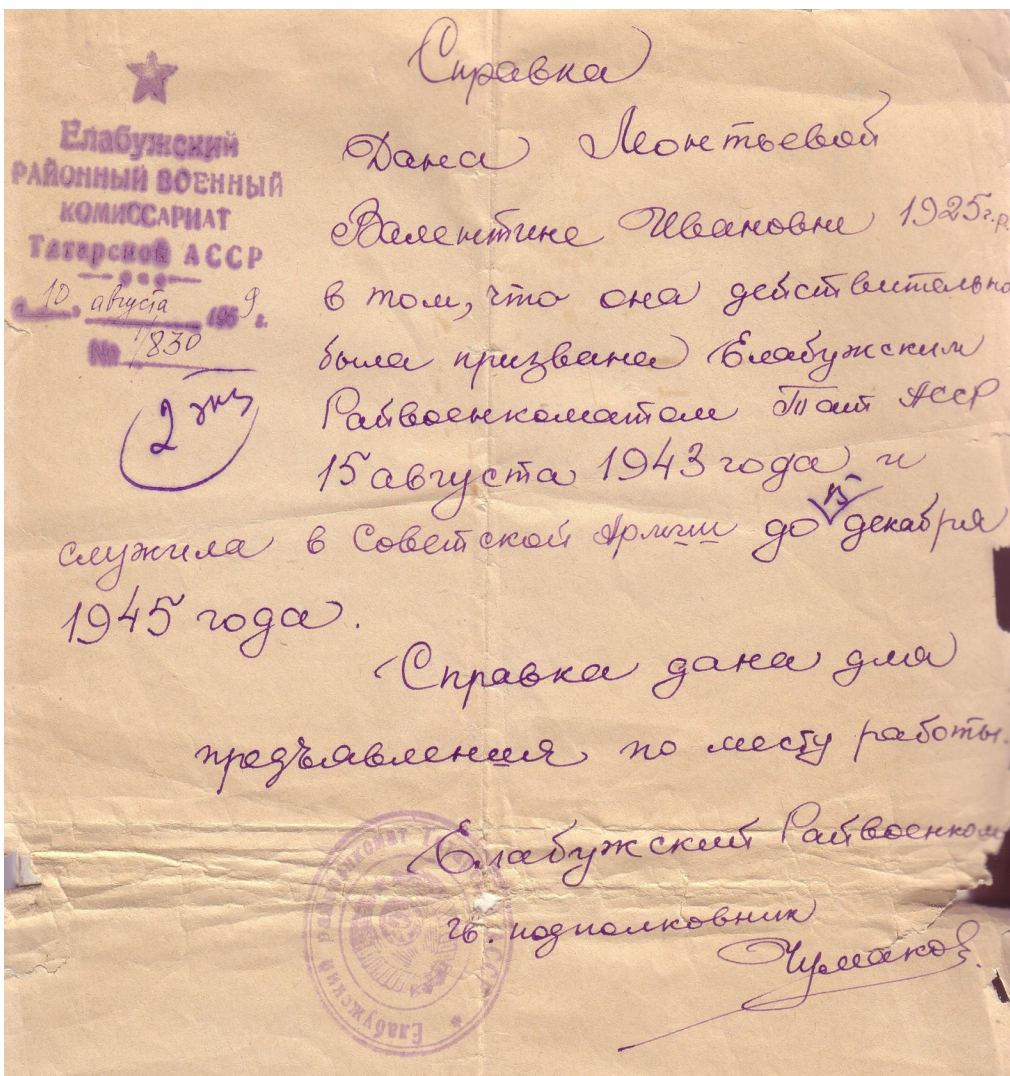 Справка
Елабужский
РАЙОННЫЙ ВОЕННЫЙ
КОМИССАРИАТ
Татарской АССР
10 августа 1959 г.
№ 1/830
2 экз
Дана Леонтьевой
Валентине Ивановне 1925г.р
в том, что она действительно
была призвана Елабужским
Райвоенкоматом Тат АССР
15 августа 1943 года и
служила в Советской Армии до декабря
1945 года.
Справка дана для
предъявления по месту работы.
Елабужский Райвоенком
гв. подполковник
Чумаков.
Елабужский райвоенкомат